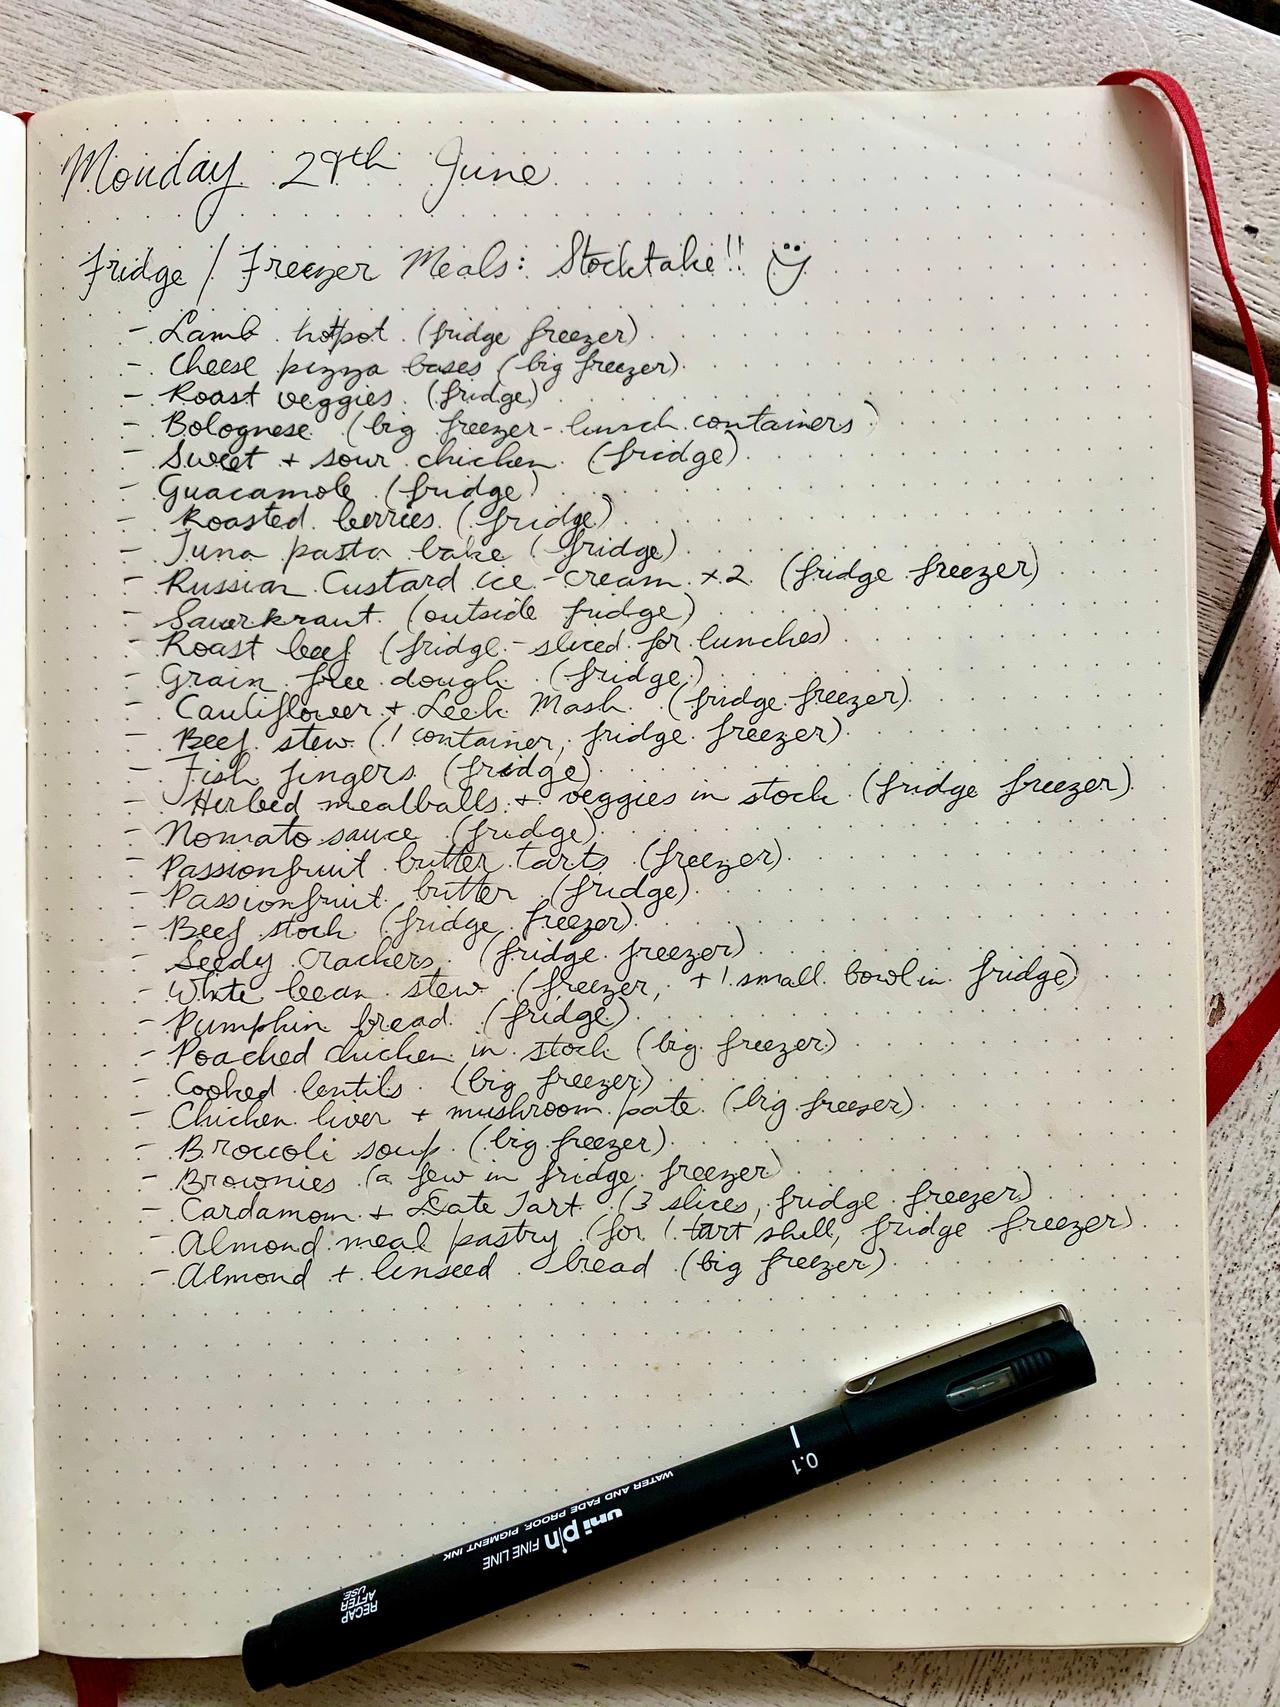 Monday 29th June
Fridge / Freezer Meals: Stocktake!!
- Lamb hotpot (fridge freezer)
- Cheese pizza bases (big freezer)
- Roast veggies (fridge)
- Bolognese (big freezer - lunch containers)
- Sweet + sour chicken (fridge)
- Guacamole (fridge)
- Roasted berries (fridge)
- Tuna pasta bake (fridge)
- Russian Custard ice-cream x2 (fridge freezer)
- Saurkraut (outside fridge)
- Roast beef (fridge - sliced for lunches)
- Grain free dough (fridge)
- Cauliflower + Leek Mash (fridge freezer)
- Beef stew (1 container, fridge freezer)
- Fish fingers (fridge)
- Herbed meatballs + veggies in stock (fridge freezer)
- Nomato sauce (fridge)
- Passionfruit butter tarts (freezer)
- Passionfruit butter (fridge)
- Beef stock (fridge freezer)
- Seedy crackers (fridge freezer)
- White bean stew (freezer, + 1 small bowl in fridge)
- Pumpkin bread (fridge)
- Poached chicken in stock (big freezer)
- Cooked lentils (big freezer)
- Chicken liver + mushroom pate (big freezer)
- Broccoli soup (big freezer)
- Brownies (a few in fridge freezer)
- Cardamom + Date Tart (3 slices, fridge freezer)
- Almond meal pastry (for 1 tart shell, fridge freezer)
- Almond + linseed bread (big freezer)
0.1
uni pin FINE LINE
WATER AND FADE PROOF, PIGMENT INK
RECAP
AFTER
USE.